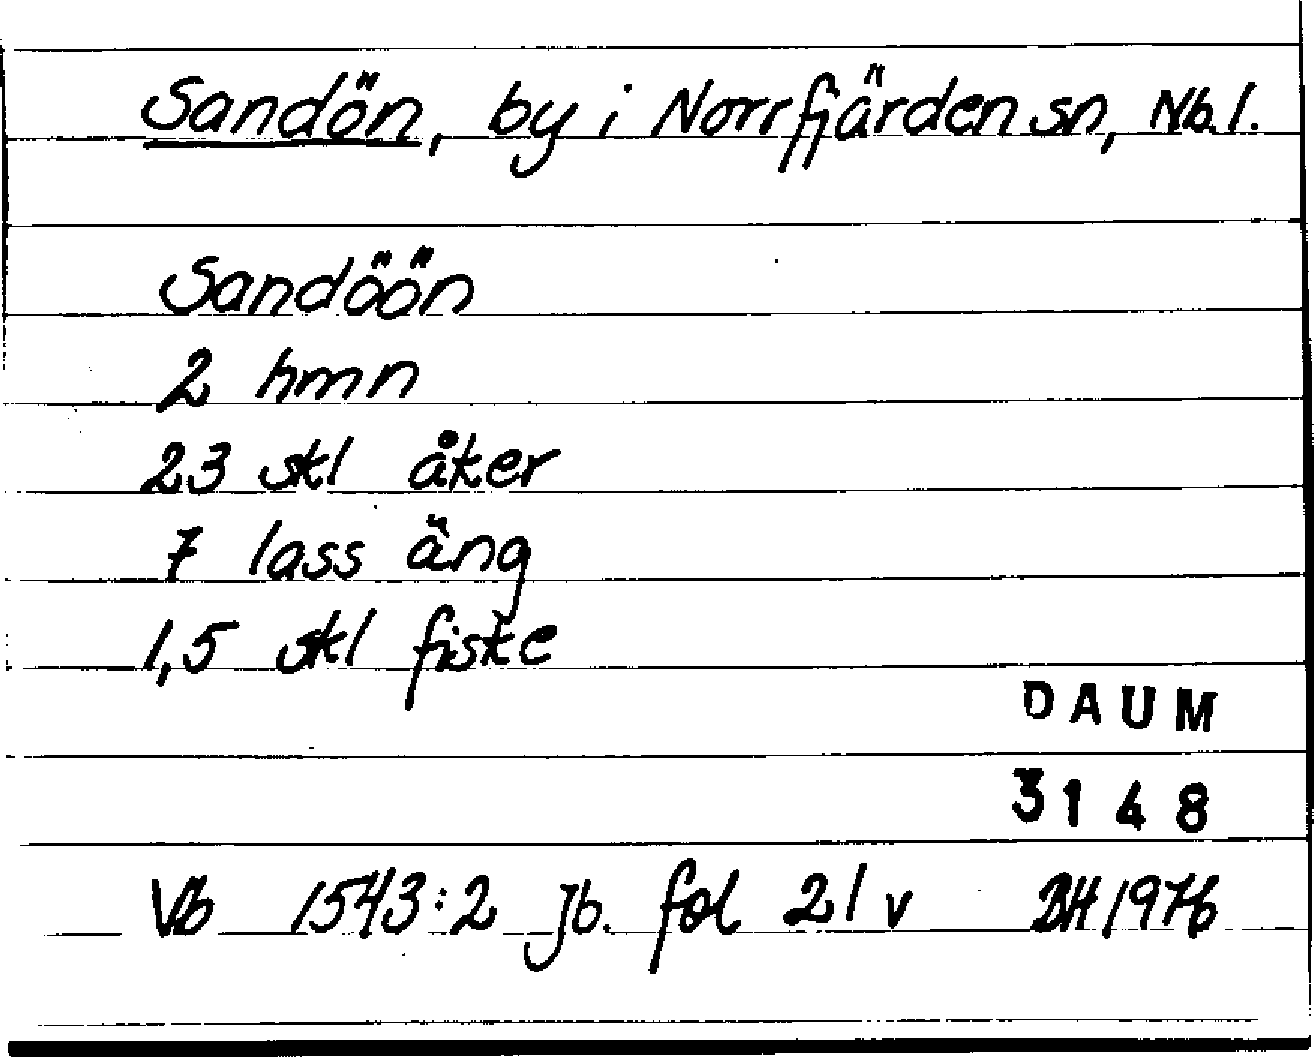 Sandön, by i Norrfjärden sn, Nb.l.
Sandöön
2 hmn
23 skl åker
7 lass äng
1,5 skl fiske
DAUM
3148
Vb 1543:2 Jb. fol 21 v BH 1976